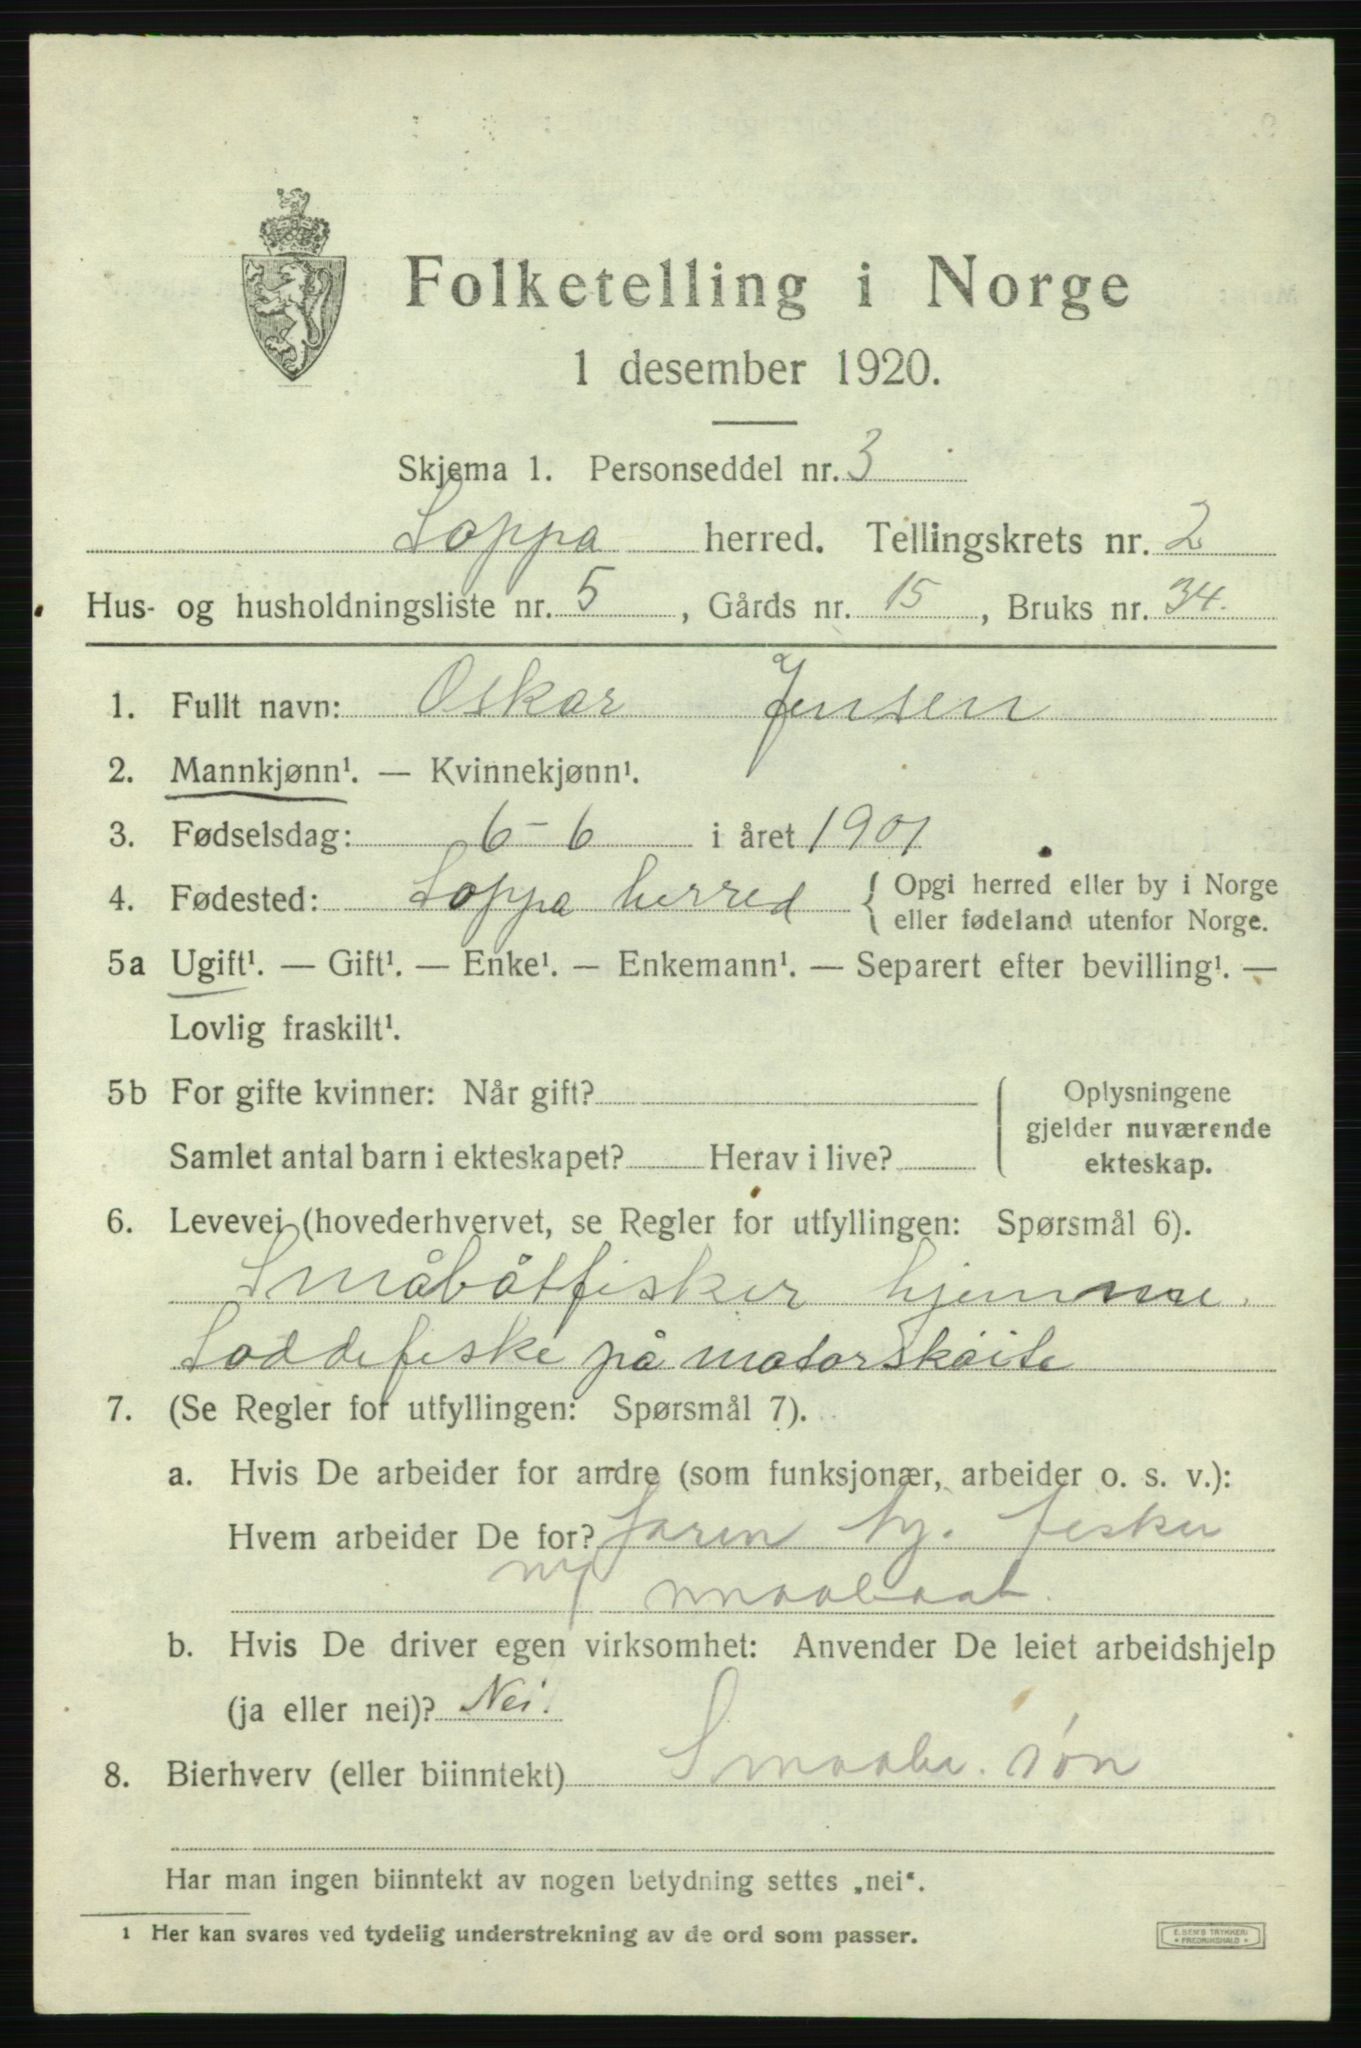 Folketelling i Norge
1 desember 1920.
Skjema 1. Personseddel nr. 3
Loppa herred. Tellingskrets nr. 2
Hus- og husholdningsliste nr. 5, Gårds nr. 15, Bruks nr. 34.
1. Fullt navn: Oskar Jensen
2. Mannkjønn¹. — Kvinnekjønn¹.
3. Fødselsdag: 6-6 i året 1901
4. Fødested: Loppa herred { Opgi herred eller by i Norge
eller fødeland utenfor Norge.
5a Ugift¹. — Gift¹. — Enke¹. — Enkemann¹. — Separert efter bevilling¹. —
Lovlig fraskilt¹.
5b For gifte kvinner: Når gift?
Samlet antal barn i ekteskapet? Herav i live?
Oplysningene
gjelder nuværende
ekteskap.
6. Levevei (hovederhvervet, se Regler for utfyllingen: Spørsmål 6).
Småbåtfisker hjemme.
Loddefiske på motorskøite
7. (Se Regler for utfyllingen: Spørsmål 7).
a. Hvis De arbeider for andre (som funksjonær, arbeider o. s. v.):
Hvem arbeider De for? faren hj. fisker
smaabaat.
b. Hvis De driver egen virksomhet: Anvender De leiet arbeidshjelp
(ja eller nei)? Nei.
8. Bierhverv (eller biinntekt) Smaabr. søn
Har man ingen biinntekt av nogen betydning settes „nei“.
1 Her kan svares ved tydelig understrekning av de ord som passer.
E. SEM'S TRYKKERI
• FREDRIKSHALD •